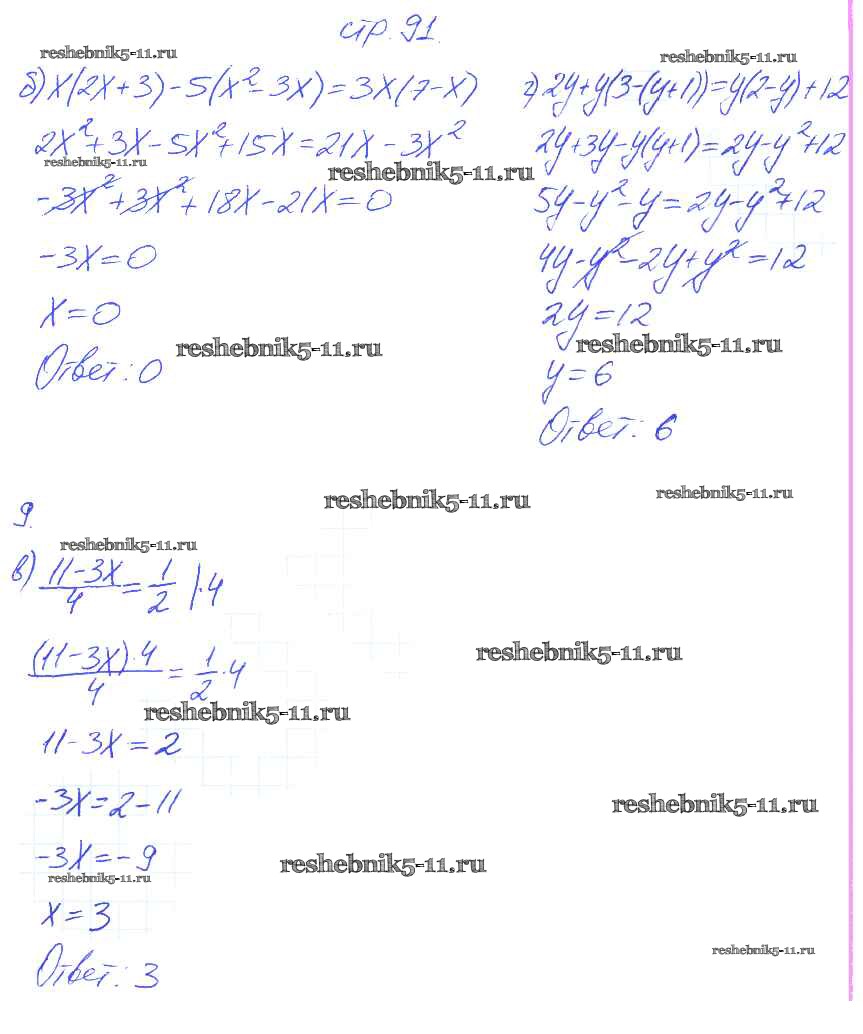 стр. 91.
reshebnik5-11.ru
б) x(2x+3)-5(x²-3x)=3x(7-x)
2x²+3x-5x²+15x=21x-3x²
reshebnik5-11.ru
reshebnik5-11.ru
-3x²+3x²+18x-21x=0
-3x=0
x=0
reshebnik5-11.ru
Ответ: 0
reshebnik5-11.ru
г) 2y+y(3-(y+1))=y(2-y)+12
2y+3y-y(y+1)=2y-y²+12
5y-y²-y=2y-y²+12
4y-y²-2y+y²=12
2y=12
reshebnik5-11.ru
y=6
Ответ: 6
reshebnik5-11.ru
reshebnik5-11.ru
9.
reshebnik5-11.ru
в) (11-3x)/4=1/2 |·4
((11-3x)·4)/4=1/2·4
reshebnik5-11.ru
reshebnik5-11.ru
11-3x=2
-3x=2-11
reshebnik5-11.ru
-3x=-9
reshebnik5-11.ru
reshebnik5-11.ru
x=3
Ответ: 3
reshebnik5-11.ru